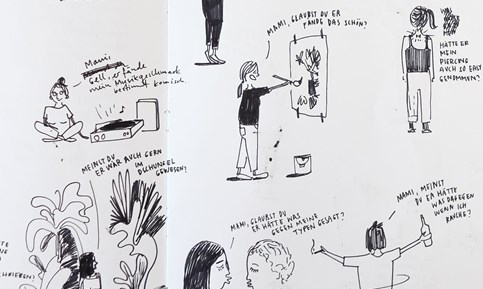 Mami,
Gell, er fände
mein Musikgeschmack
bestimmt komisch
MAMI, GLAUBST DU ER
FÄNDE DAS SCHÖN?
WAS
HÄTTE ER
MEIN
PIERCING
AUCH SO FAST
GENOMMEN?
MEINST DU
ER WÄR AUCH GERN
IM
DSCHUNGEL
GEWESEN?
MAMI, GLAUBST DU
ER HÄTTE WAS
GEGEN MEINE
TYPEN GESAGT?
MAMI, MEINST
DU ER HÄTTE
WAS DAGEGEN
WENN ICH
RAUCHE?